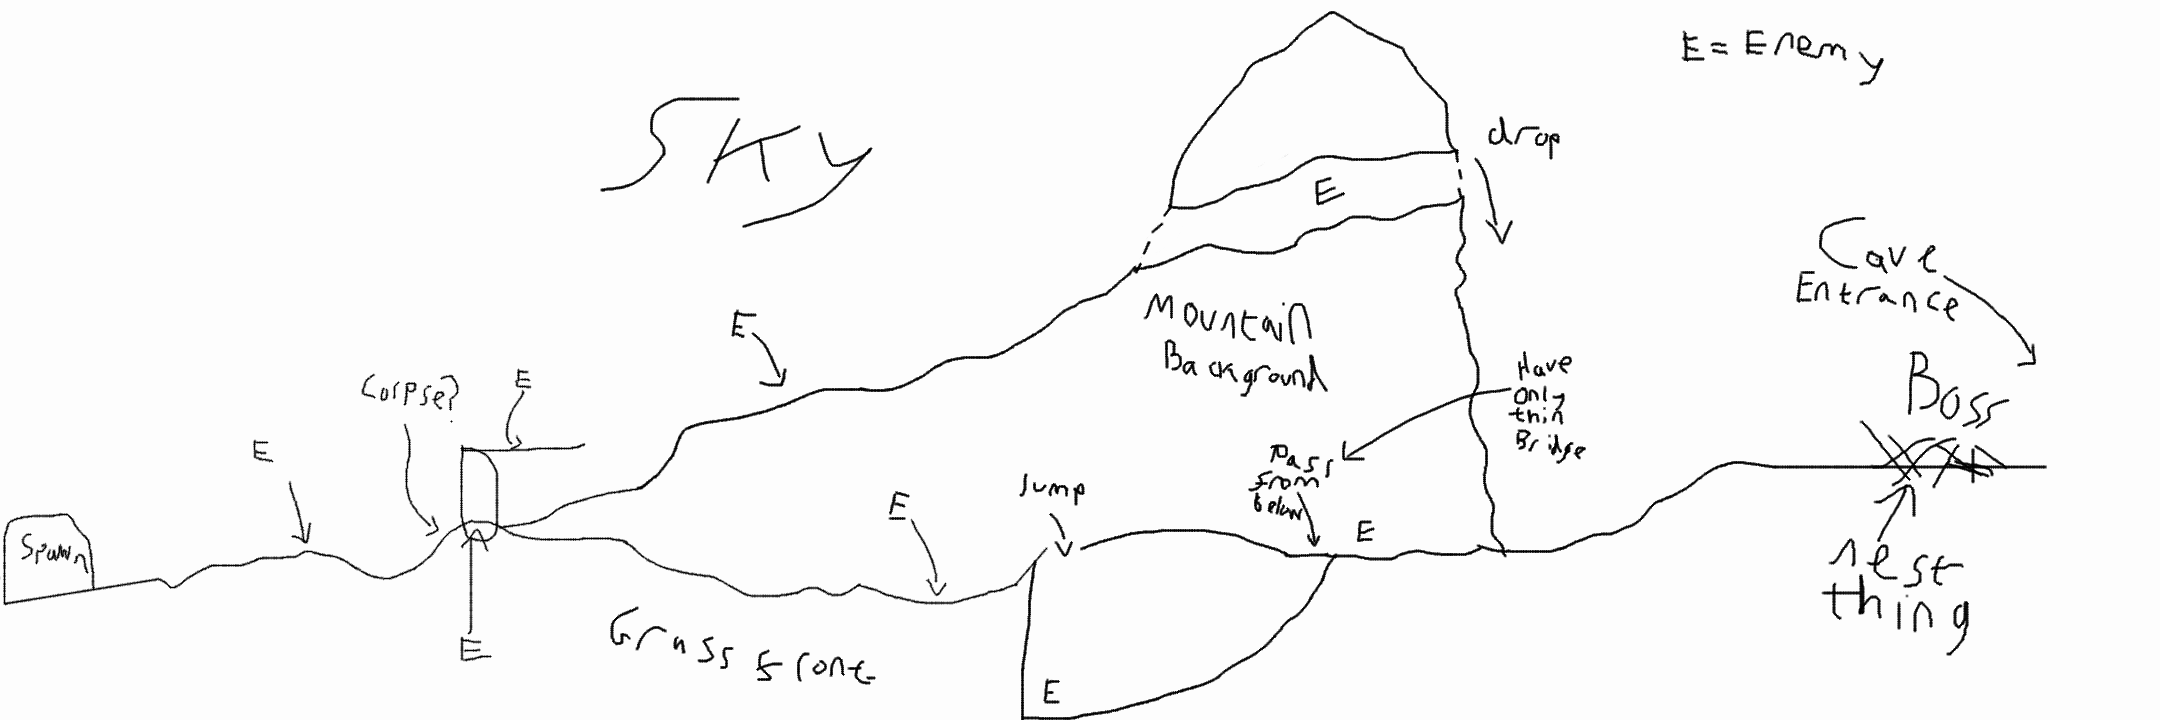 E = Enemy
SKY
drop
E
Cave
Entrance
Mountain
Background
E
Have
only
thin
Bridge
Boss
Corpse?
E
E
Pass
from
below
Jump
E
E
Spawn
nest
thing
E
Grass front
E